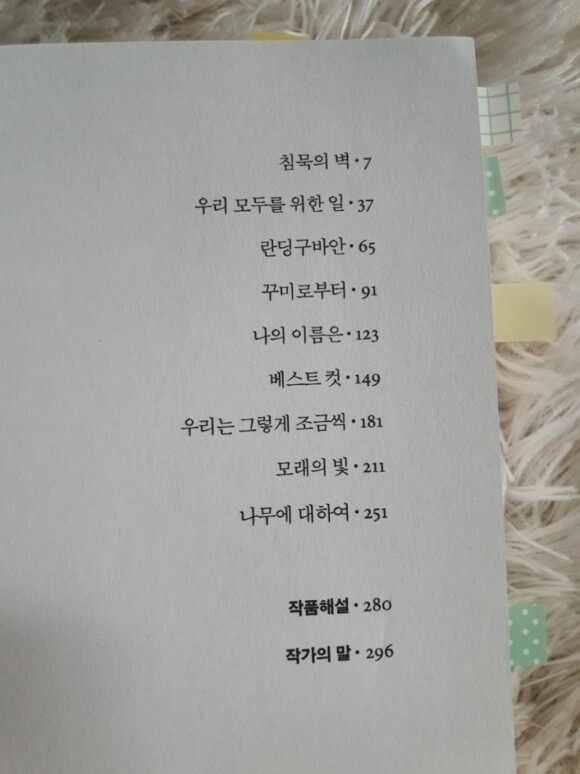 침묵의 벽 • 7
우리 모두를 위한 일 • 37
란딩구바안 • 65
꾸미로부터 • 91
나의 이름은 • 123
베스트 컷 • 149
우리는 그렇게 조금씩 • 181
모래의 빛 • 211
나무에 대하여 • 251
작품해설 • 280
작가의 말 • 296